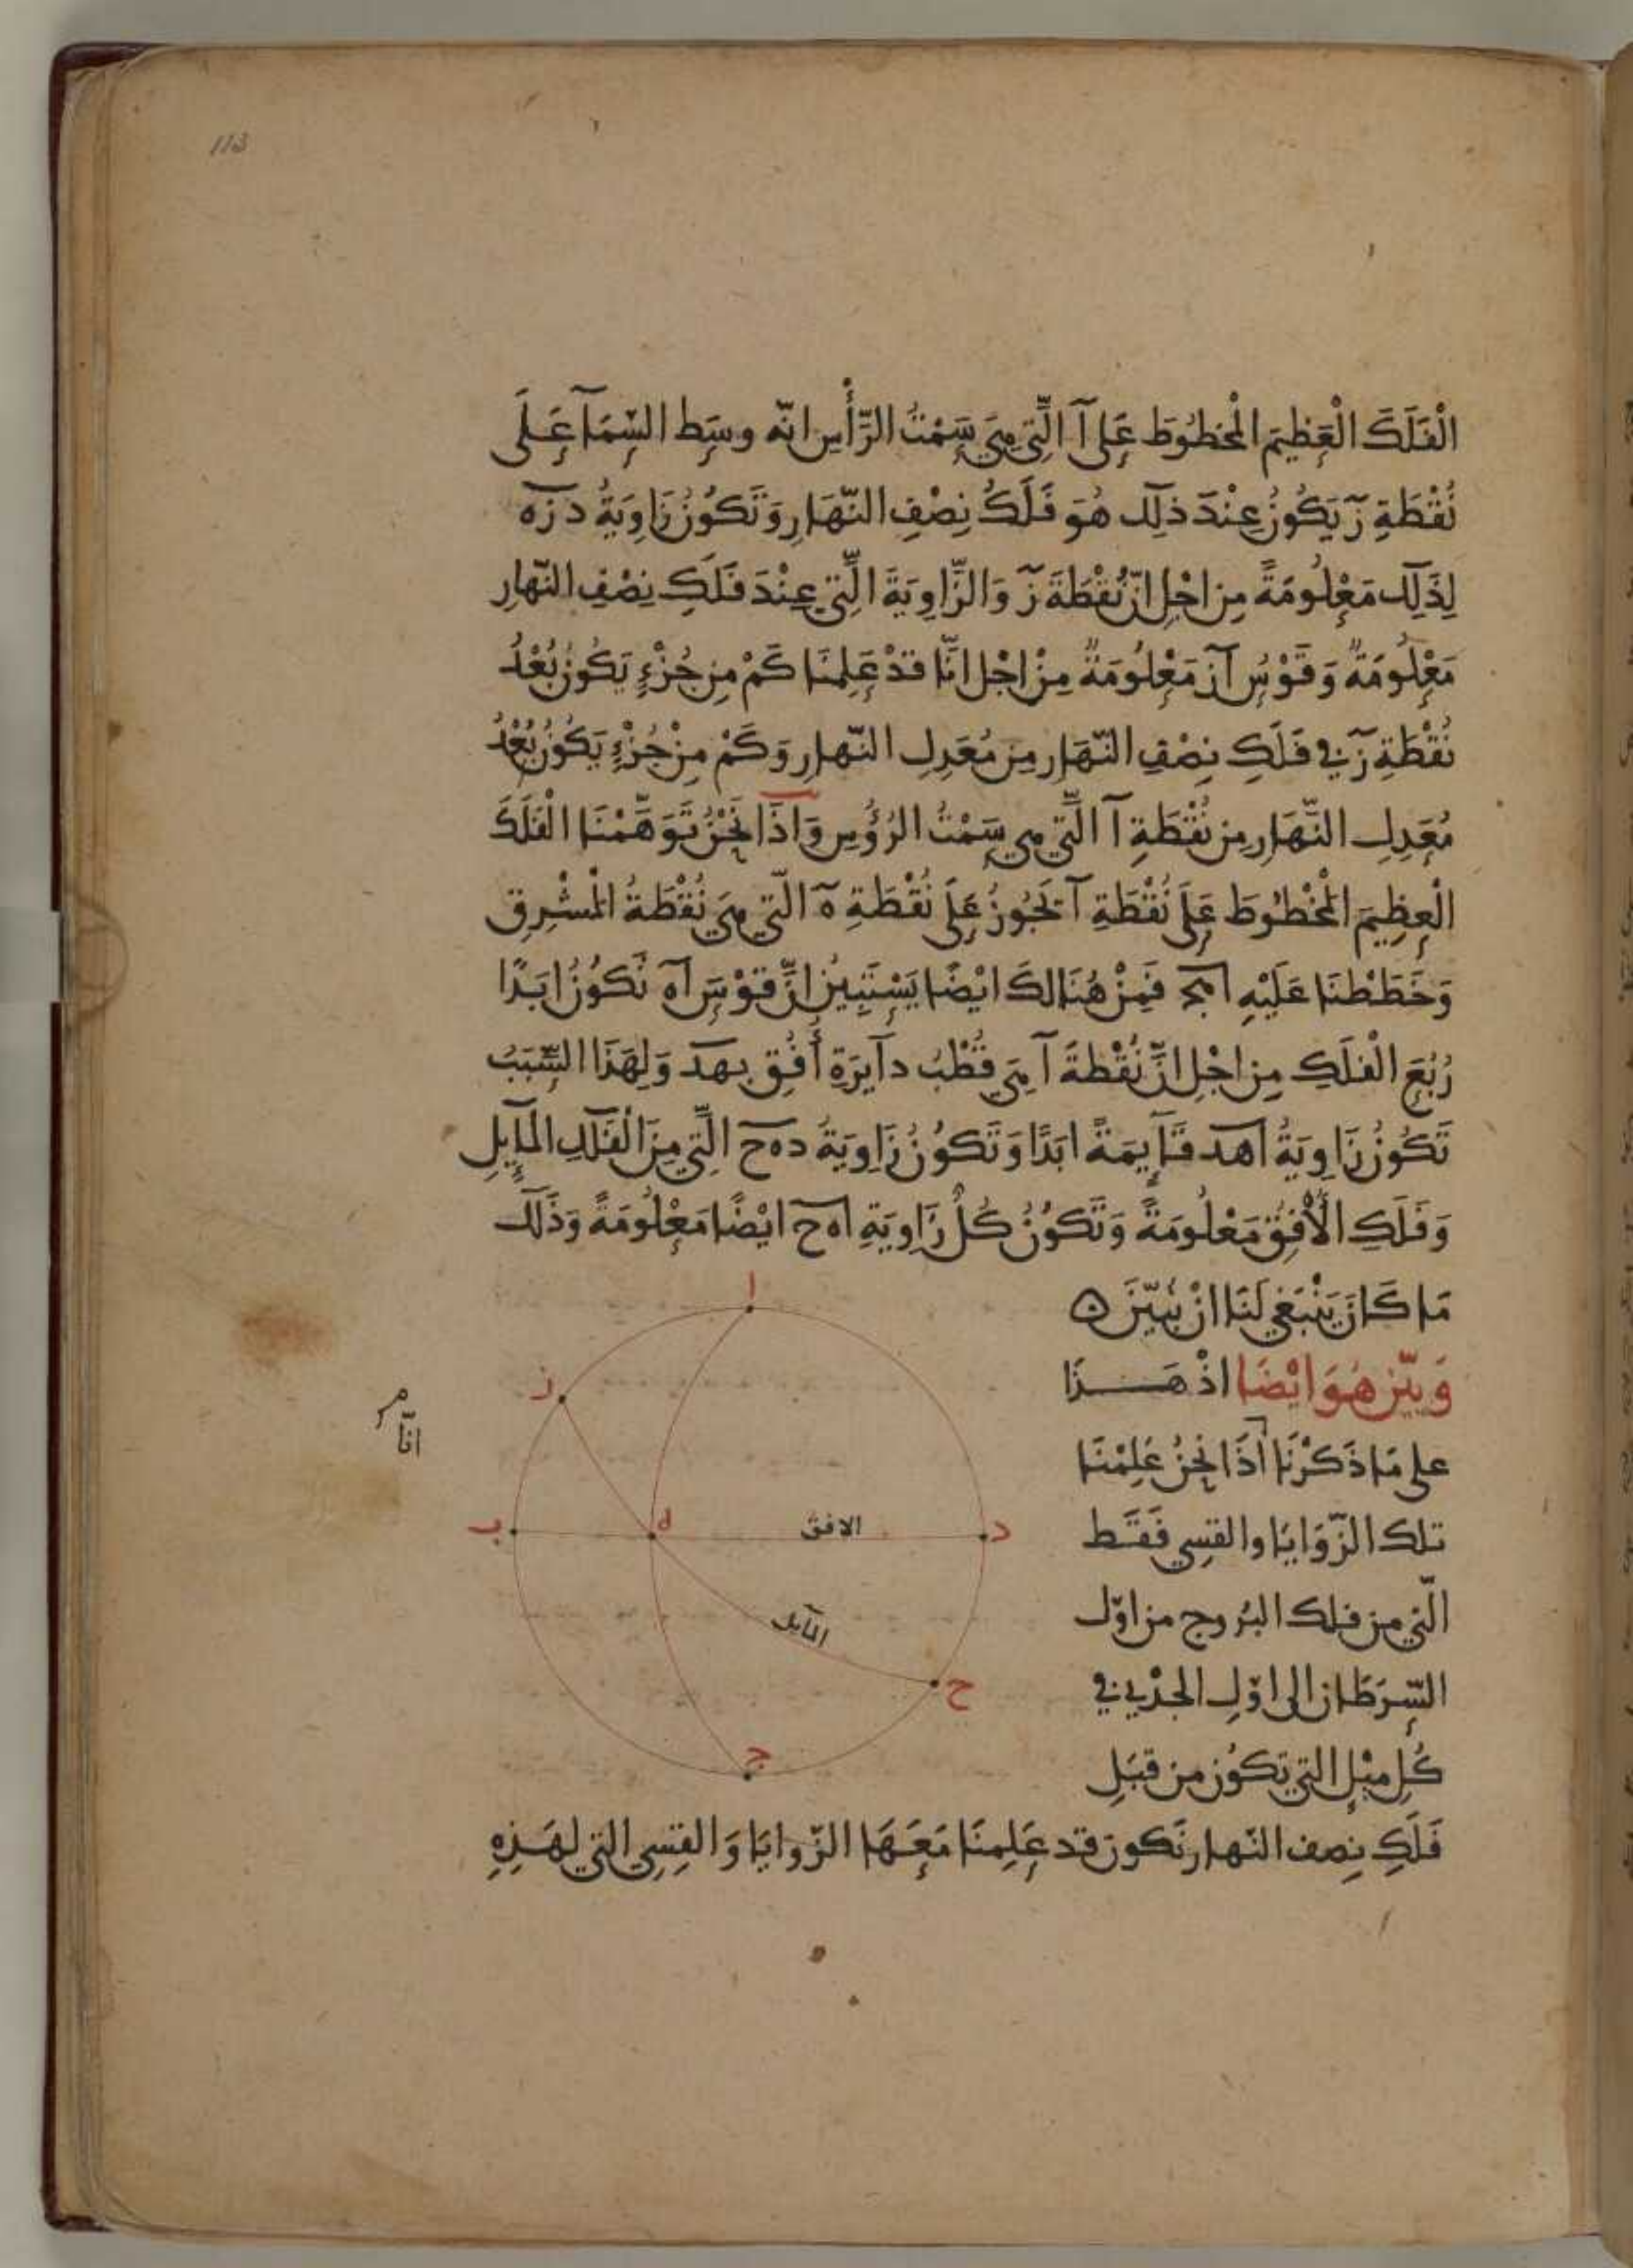 113
الْفَلَكَ الْعَظِيمَ الْمخطُوطَ عَلى آ الَّتِي هِيَ سَمْتُ الرَّأْسِ انّه وسَط السّمَآ عَلَى
نُقْطَةِ زَ يَكُونُ عِنْدَ ذلِك هُوَ فَلَكُ نِصْفِ النّهَارِ وَتَكُونُ زَاوِيَةُ د زه
لِذَلِك مَعْلُومَةً مِن اجْلِ انّ نُقْطَةَ زَ وَالزَّاوِيَةَ الَّتِي عِنْدَ فَلَكِ نِصْفِ النّهارِ
مَعْلُومَةٌ وَقَوْسُ آز مَعْلُومَةٌ مِنْ اجْل انَّا قدْ عَلِمنَا كَمْ مِن جُزْءٍ يَكُونُ بُعْدُ
نُقْطَةِ زَ في فَلَكِ نِصْفِ النّهَار مِن مُعَدِلِ النّهارِ وَكَمْ مِنْ جُزْءٍ يَكُونُ بُعْدُ
مُعَدِلِ النَّهَارِ مِن نُقْطَةِ آ الَّتِي هي سَمْتُ الرُؤُسِ وَاذَا نَحْنُ تَوَهَّمْنَا الْفَلَكَ
الْعظِيمَ الْمخْطُوطَ عَلَى نُقْطَةِ آ يَجُوزُ عَلَى نُقْطَةِ هَ الّتِي هِيَ نُقْطَةُ الْمشْرِقِ
وَخَطَطْنَا عَلَيْهِ اهج فَمِنْ هُنَالكَ ايْضًا يَسْتَبِينُ انَّ قوْسَ آه تَكُونُ ابَدًا
رُبْعَ الْفلَكِ مِن اجْلِ انَّ نُقْطةَ آ هِيَ قُطْبُ دآيرَةِ أُفُقِ بهد وَلِهَذَا السَّبَبُ
تَكُونُ زَاوِيَةُ اهد قَآيِمَةً ابَدًا وَتَكُونُ زَاوِيَةُ دهح الَّتِي مِنَ الْفَلَكِ الْمَآيِلِ
وَفَلَكِ الأُفُقِ مَعْلُومَةً وَتَكُونُ كُلُّ زَاوِيَةِ اهح ايْضًا مَعْلُومَةً وَذَلَك
مَا كَانَ يَنْبَغِي لَنَا انْ نُبَيّنَ ه
وَبيّن هُوَ ايْضَا اذْ هَـذَا
على مَا ذَكَرْنَا أذَا نَحْنُ عَلِمْنَا
تلك الزّوَايَا والقسِي فَقَـط
الّتي من فلك البُروج من اوّل
السّرَطَان الى اوّلِ الجدْي في
كُلِ ميْلٍ التي تكوُن من قبَلِ
فَلَكِ نصف النّهار نَكون قد عَلِمنَا مَعَـهَا الزّوايَا وَالقِسِي التي لهَـذِهِ
ا
ز
ب
ه
الافق
د
المآيل
ح
ج